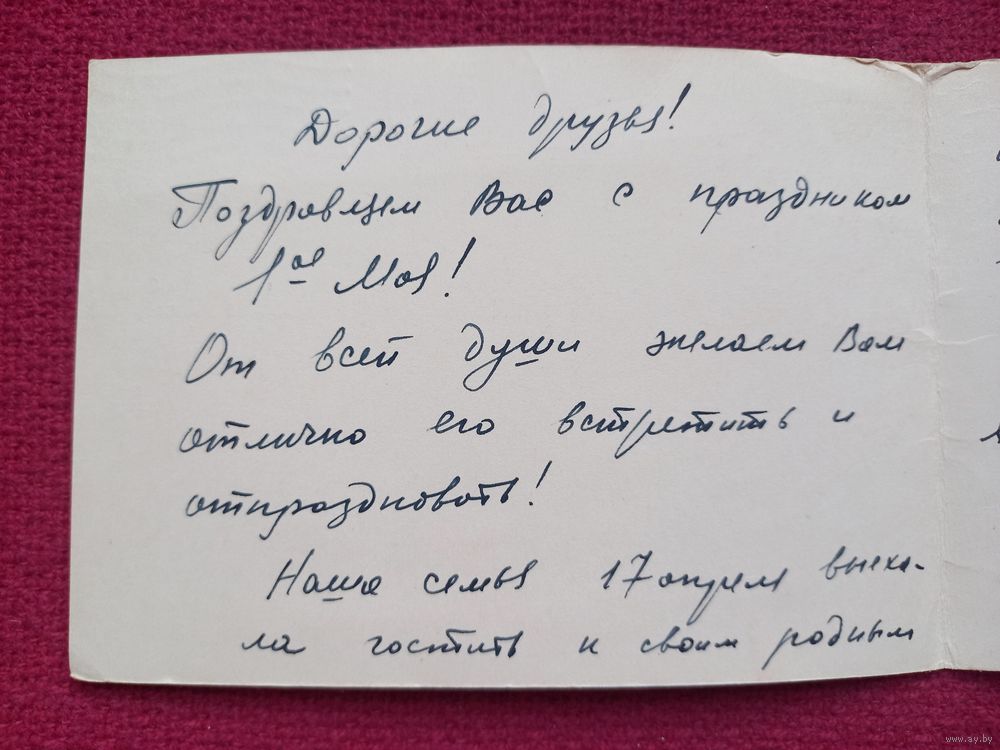 Дорогие друзья!
Поздравляем Вас с праздником
1ое Мая!
От всей души желаем Вам
отлично его встретить и
отпраздновать!
Наша семья 17 апреля выеха-
ла гостить к своим родным
www.ay.by